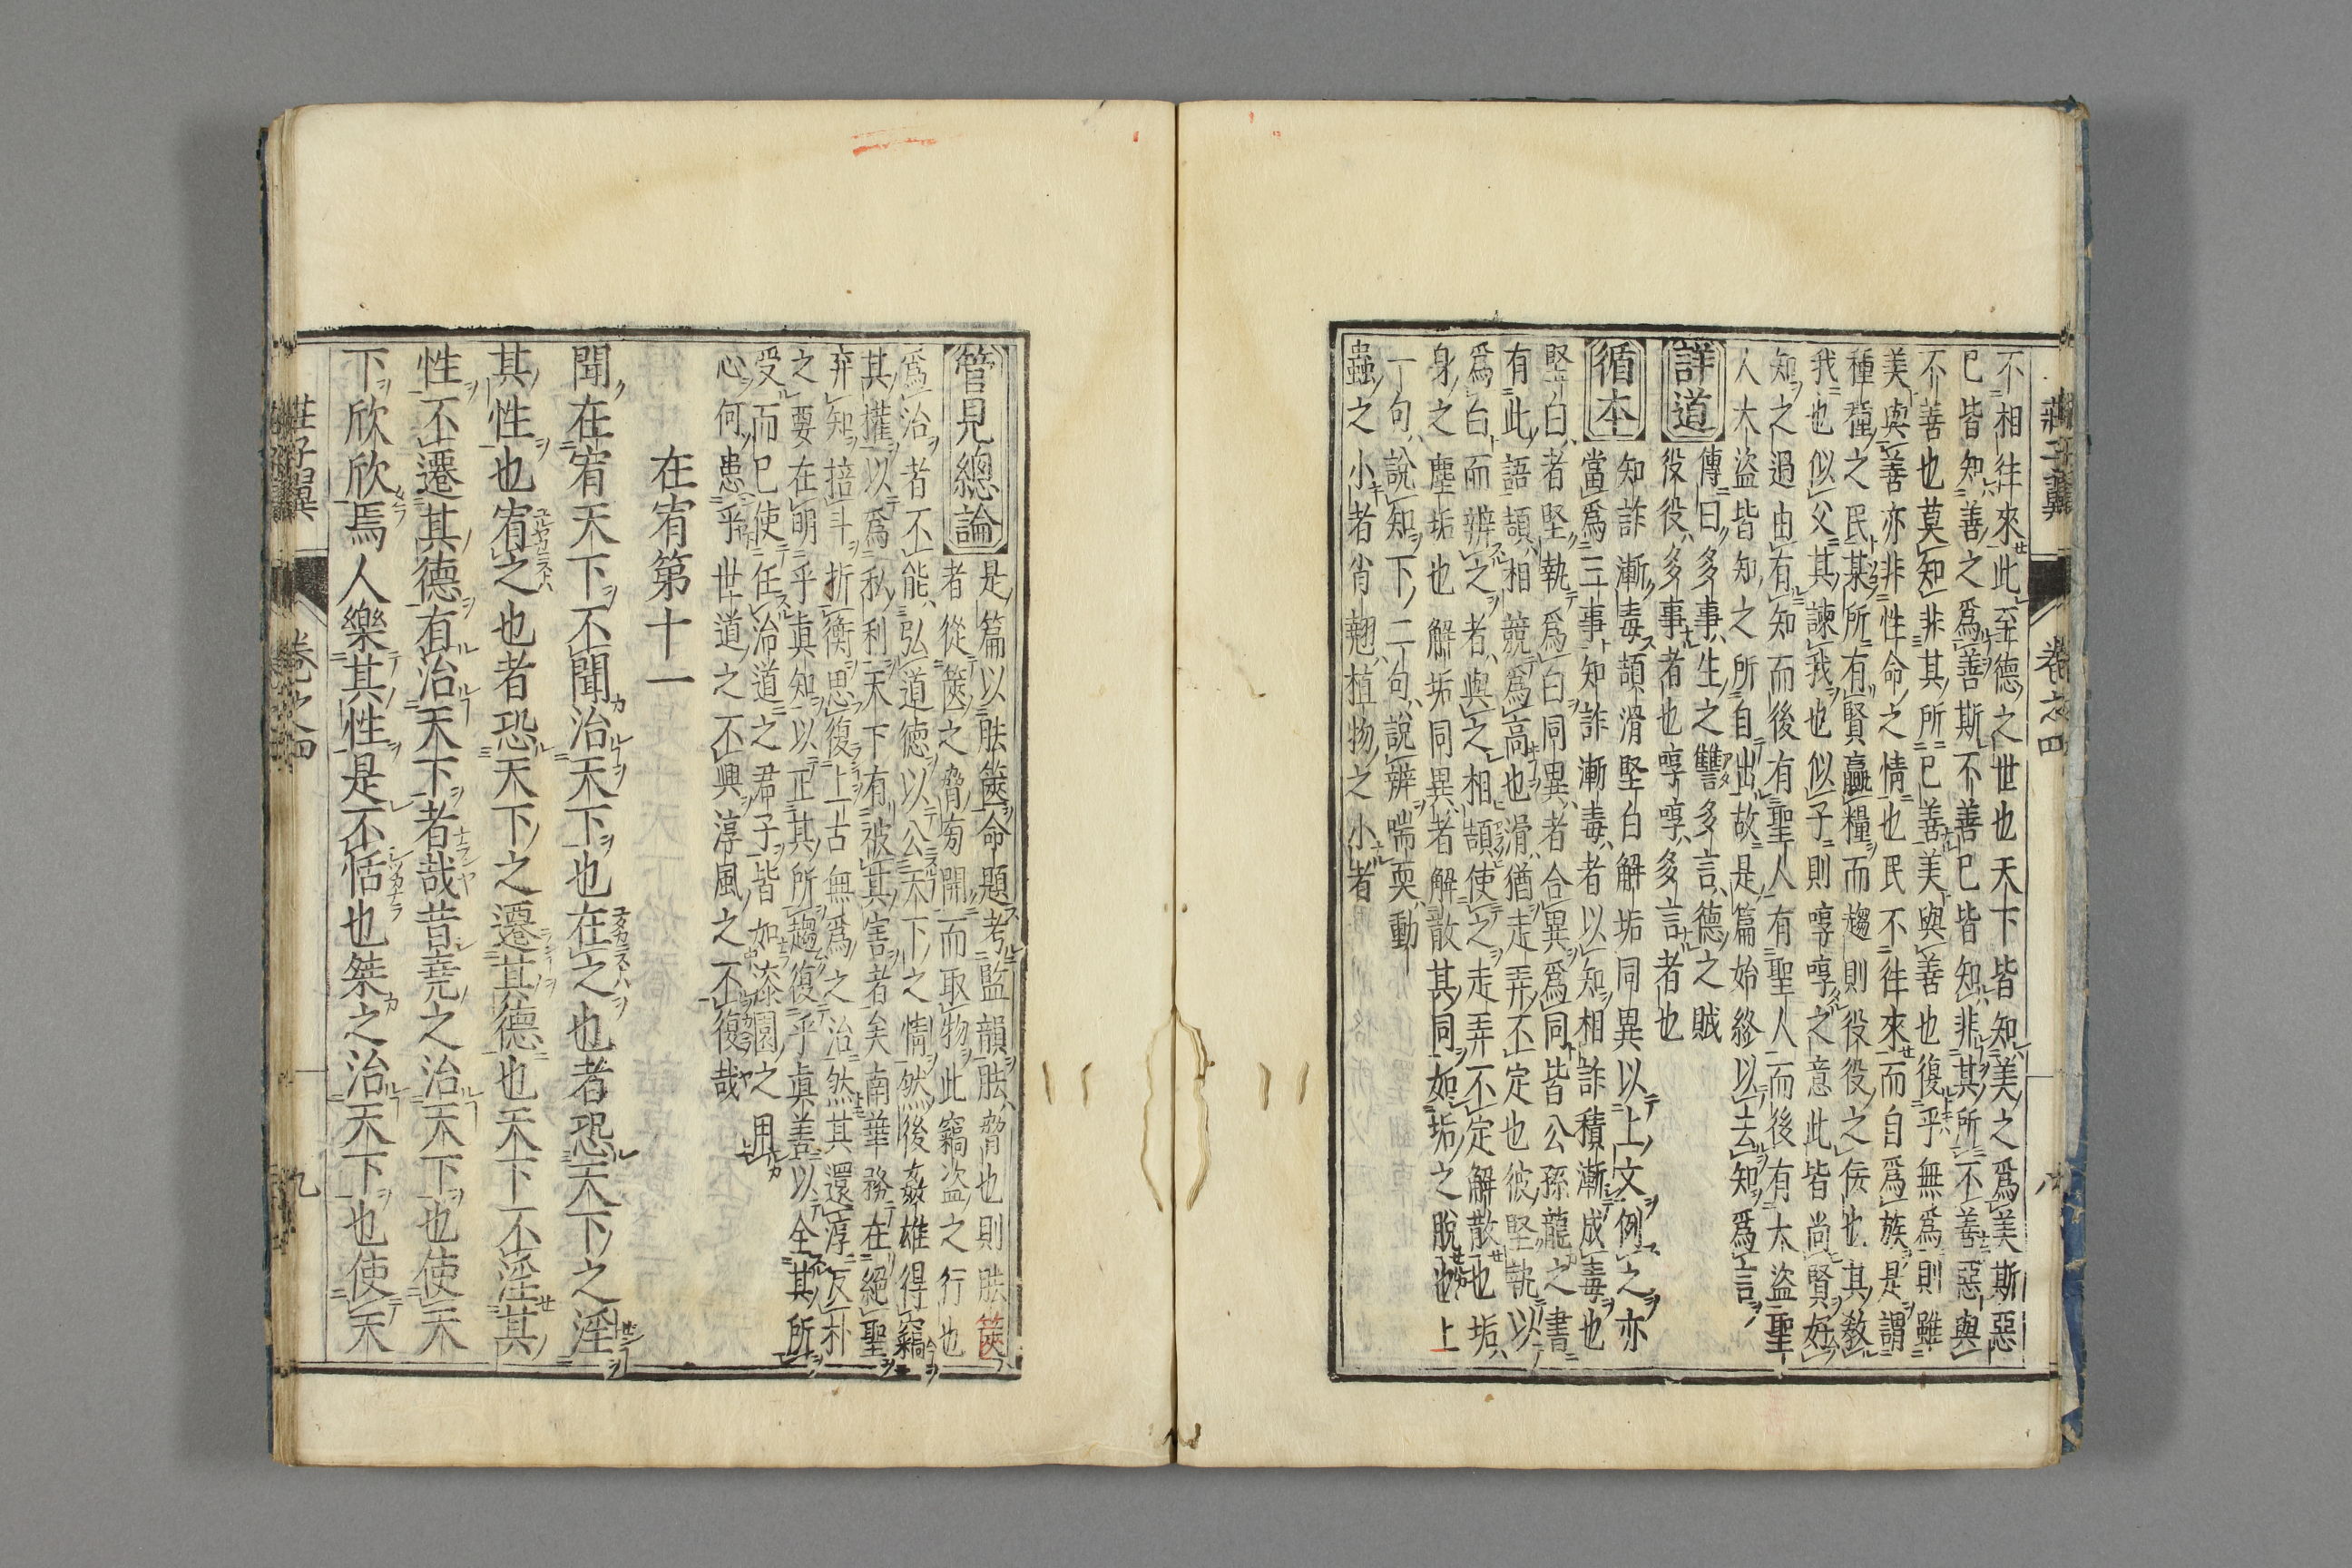 莊子翼 卷之四
不相往來此至德之世也天下皆知美之爲美斯惡
已皆知善之爲善斯不善已皆知非其所不善惡與
不善也莫知非其所已善美與善也復乎無爲則雖
美與善亦非性命之情也民不往來而自爲族是謂
種種之民某所有賢贏糧而趨則役役之佞也其教
我也似父其諫我也似子則啍啍之意此皆尚賢好
知之過由有知而後有聖人有聖人而後有大盜聖
人大盜皆知之所自出故是篇始終以去知爲言
詳道 傳曰多事生之讐多言德之賊
役役多事者也啍啍多言者也
循本 知詐漸毒頡滑堅白解垢同異以上文例之亦
當爲三事知詐漸毒者以知相詐積漸成毒也
堅白者堅執爲白同異者合異爲同皆公孫龍之書
有此語頡相競爲高也滑猶走弄不定也彼堅執以
爲白而辨之者與之相頡使之走弄不定解散也垢
身之塵垢也解垢同異者解散其同如垢之脫也上
一句說知下二句說辨喘耎動
蟲之小者肖翹植物之小者
管見總論 是篇以胠篋命題考監韻胠脅也則胠篋
者從篋之脅旁開而取物此竊盗之行也
爲治者不能弘道德以公天下之情然後姦雄得竊
其權以爲私利天下有被其害者矣南華務在絕聖
弃知掊斗折衡思復上古無爲之治然其還淳反朴
之要在明乎真知以正其所趨復乎真善以全其所
受而已使任治道之君子皆如漆園之用
心何患乎世道之不興淳風之不復哉
在宥第十一
聞在宥天下不聞治天下也在之也者恐天下之淫
其性也宥之也者恐天下之遷其德也天下不淫其
性不遷其德有治天下者哉昔堯之治天下也使天
下欣欣焉人樂其性是不恬也桀之治天下也使天
莊子翼 卷之四 九